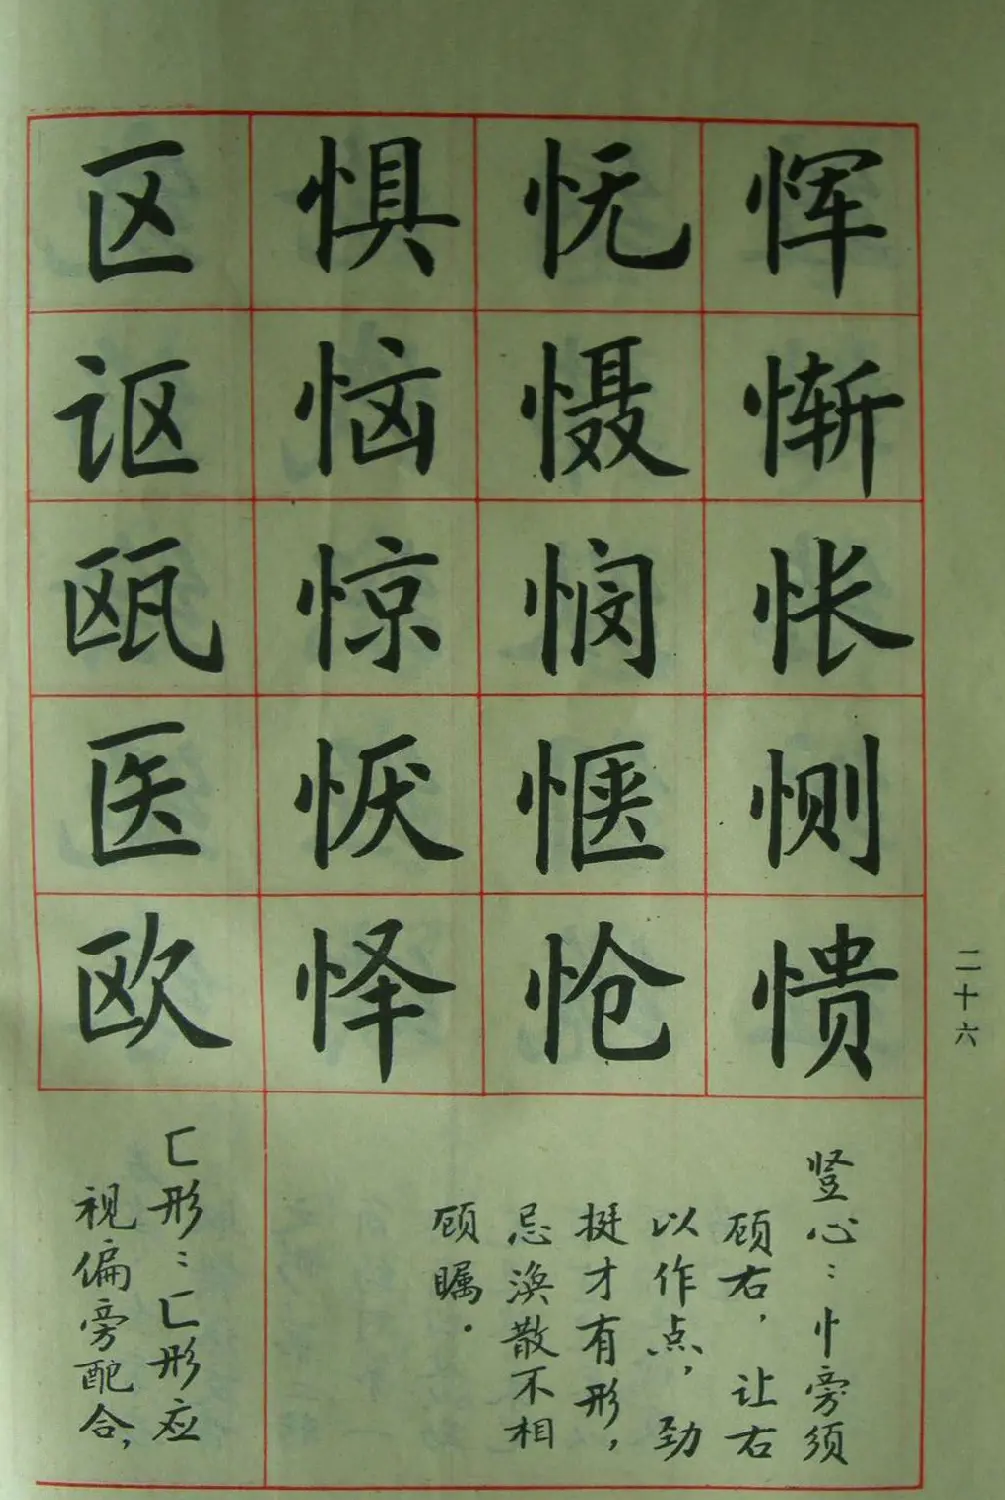 恽惭怅恻愦
怃慑悯惬怆
惧恼惊恹怿
区讴瓯医欧
二十六
竖心：忄旁须
顾右，让右
以作点，劲
挺才有形，
忌涣散不相
顾瞩。
匚形：匚形应
视偏旁配合，